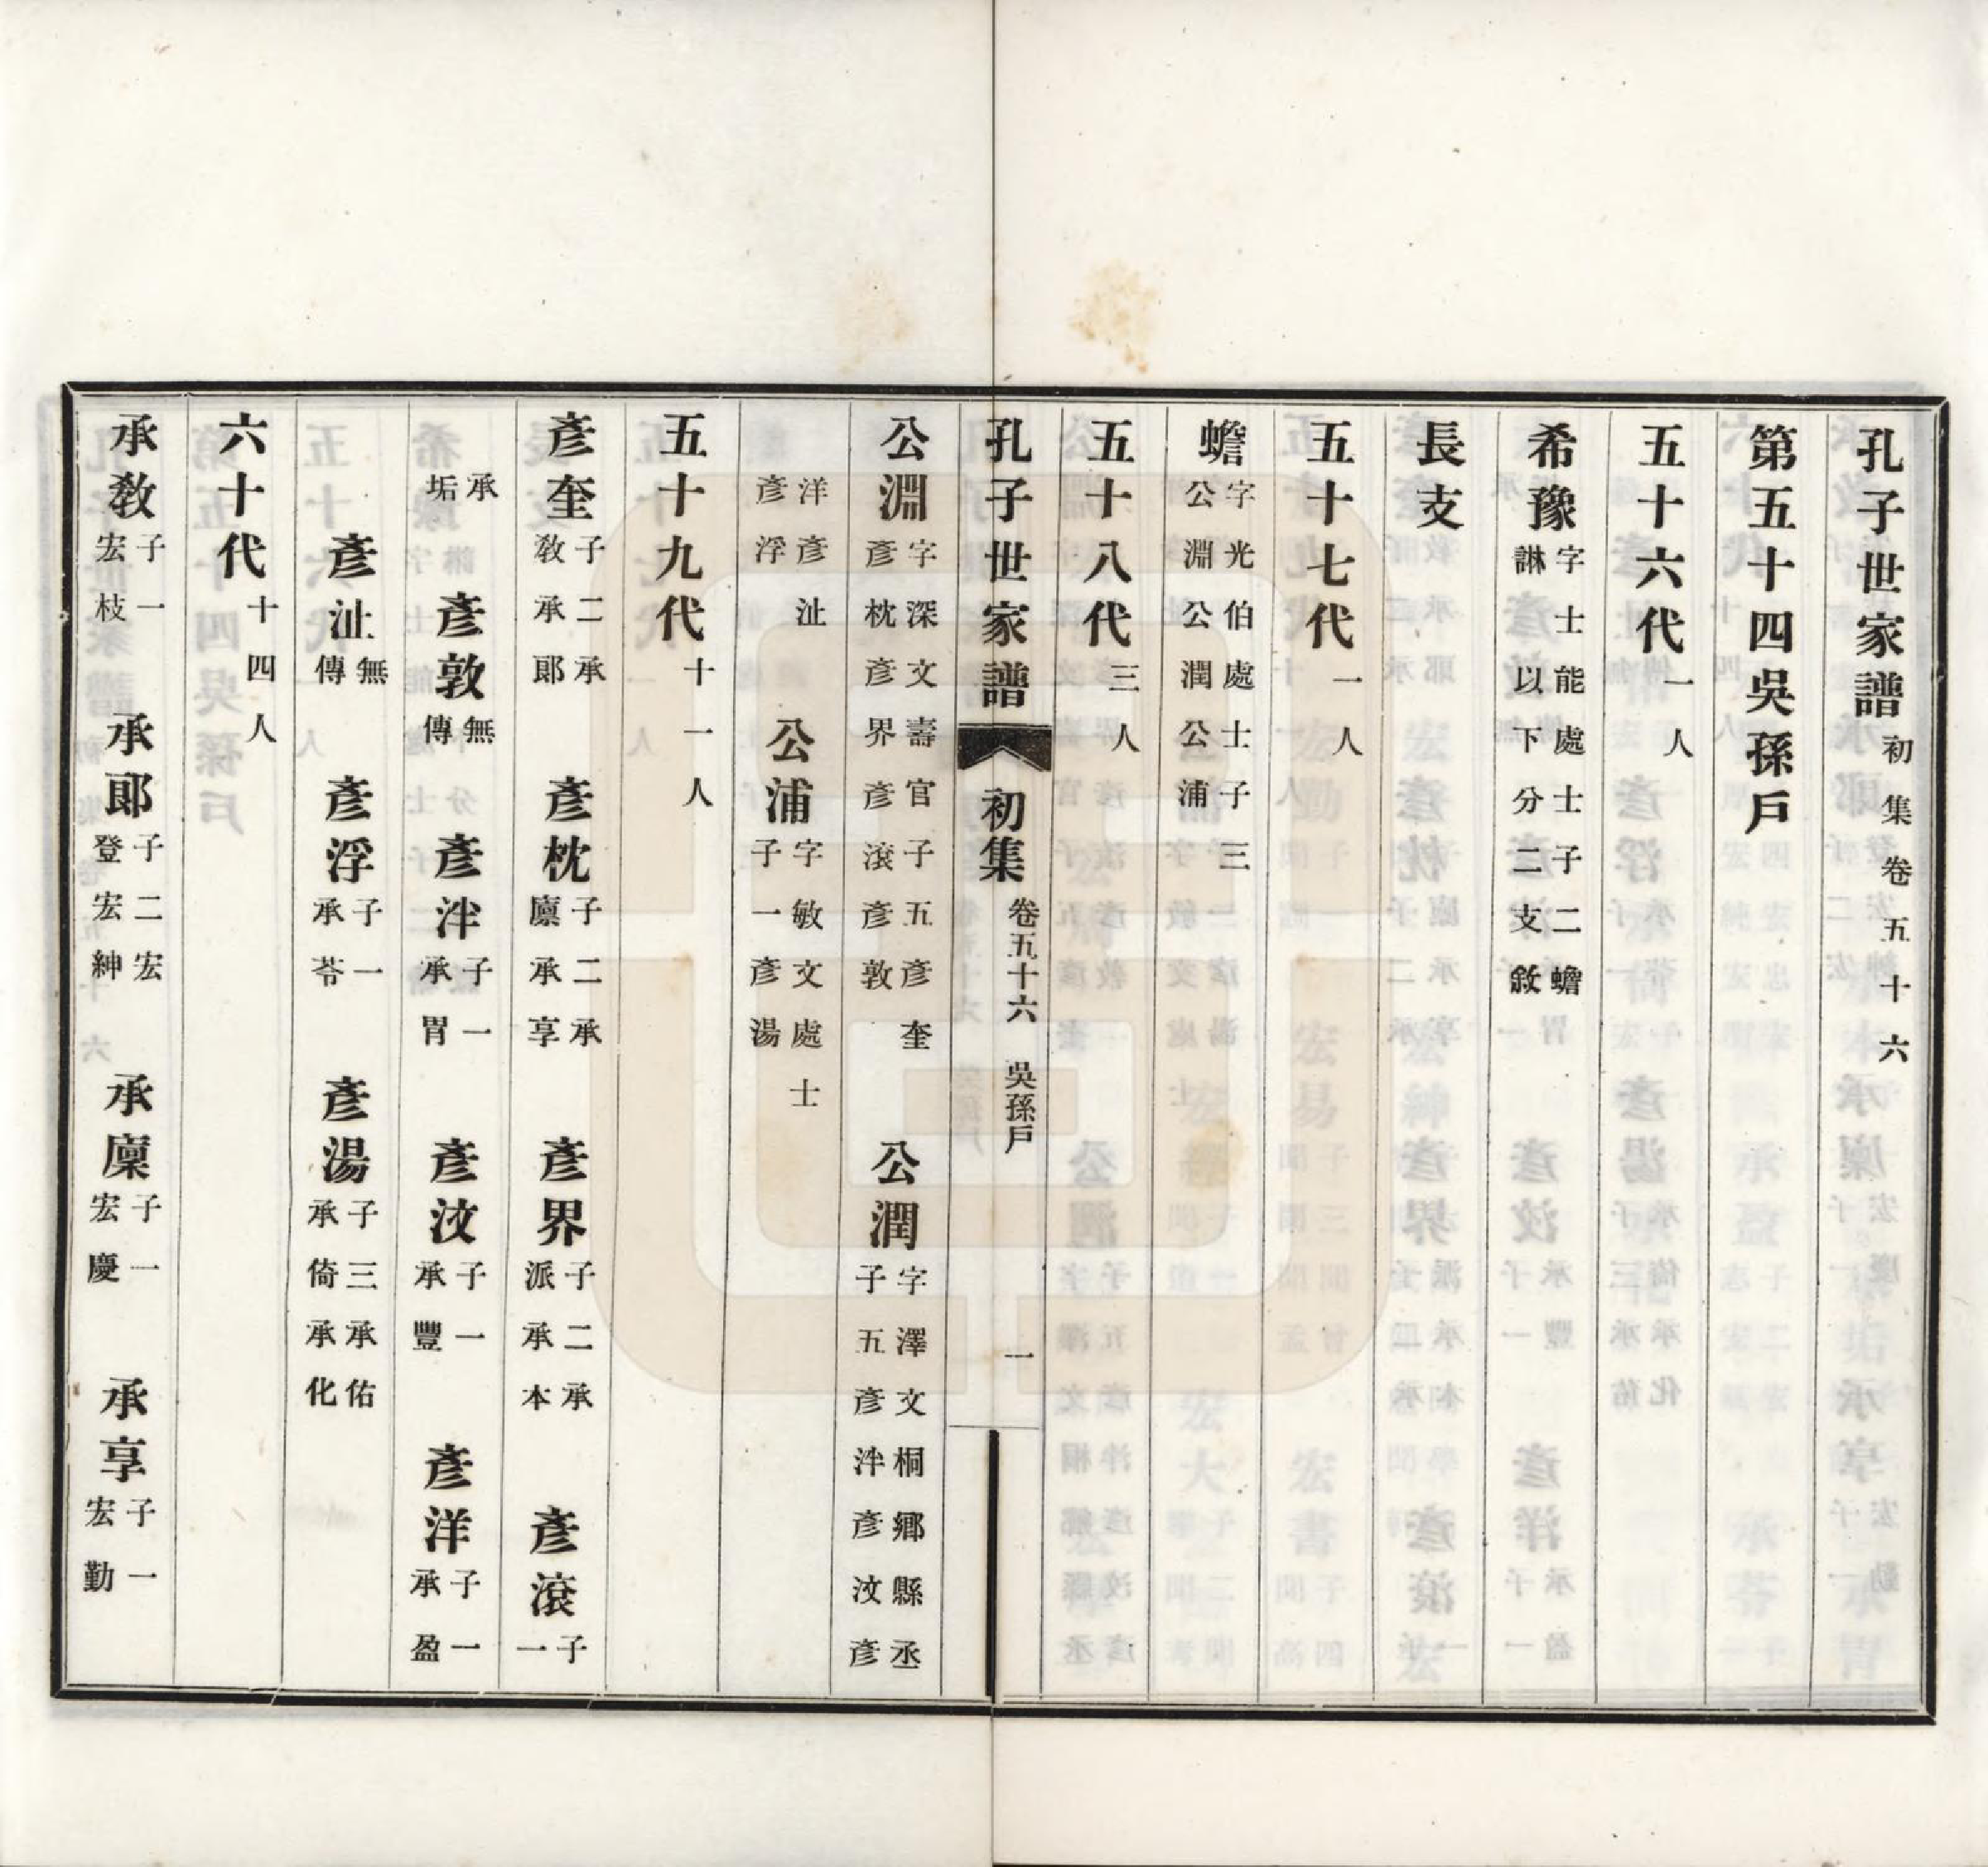 孔子世家譜初集卷五十六
第五十四吳孫戶
五十六代一人
希豫字士能處士子二蟾諃以下分二支敘
長支
五十七代一人
蟾字光伯處士子三公淵公潤公浦
五十八代三人
孔子世家譜 初集 卷五十六 吳孫戶 一
公淵字深文壽官子五彥奎彥枕彥界彥滾彥敦 公潤字澤文桐鄉縣丞子五彥泮彥汶彥
洋彥沚彥浮 公浦字敏文處士子一彥湯
五十九代十一人
彥奎子二承教承郞 彥枕子二承廩承享 彥界子二承派承本 彥滾子一
承垢 彥敦無傳 彥泮子一承胃 彥汶子一承豐 彥洋子一承盈
彥沚無傳 彥浮子一承苓 彥湯子三承佑承倚承化
六十代十四人
承教子一宏枝 承郞子二宏登宏紳 承廩子一宏慶 承享子一宏勤